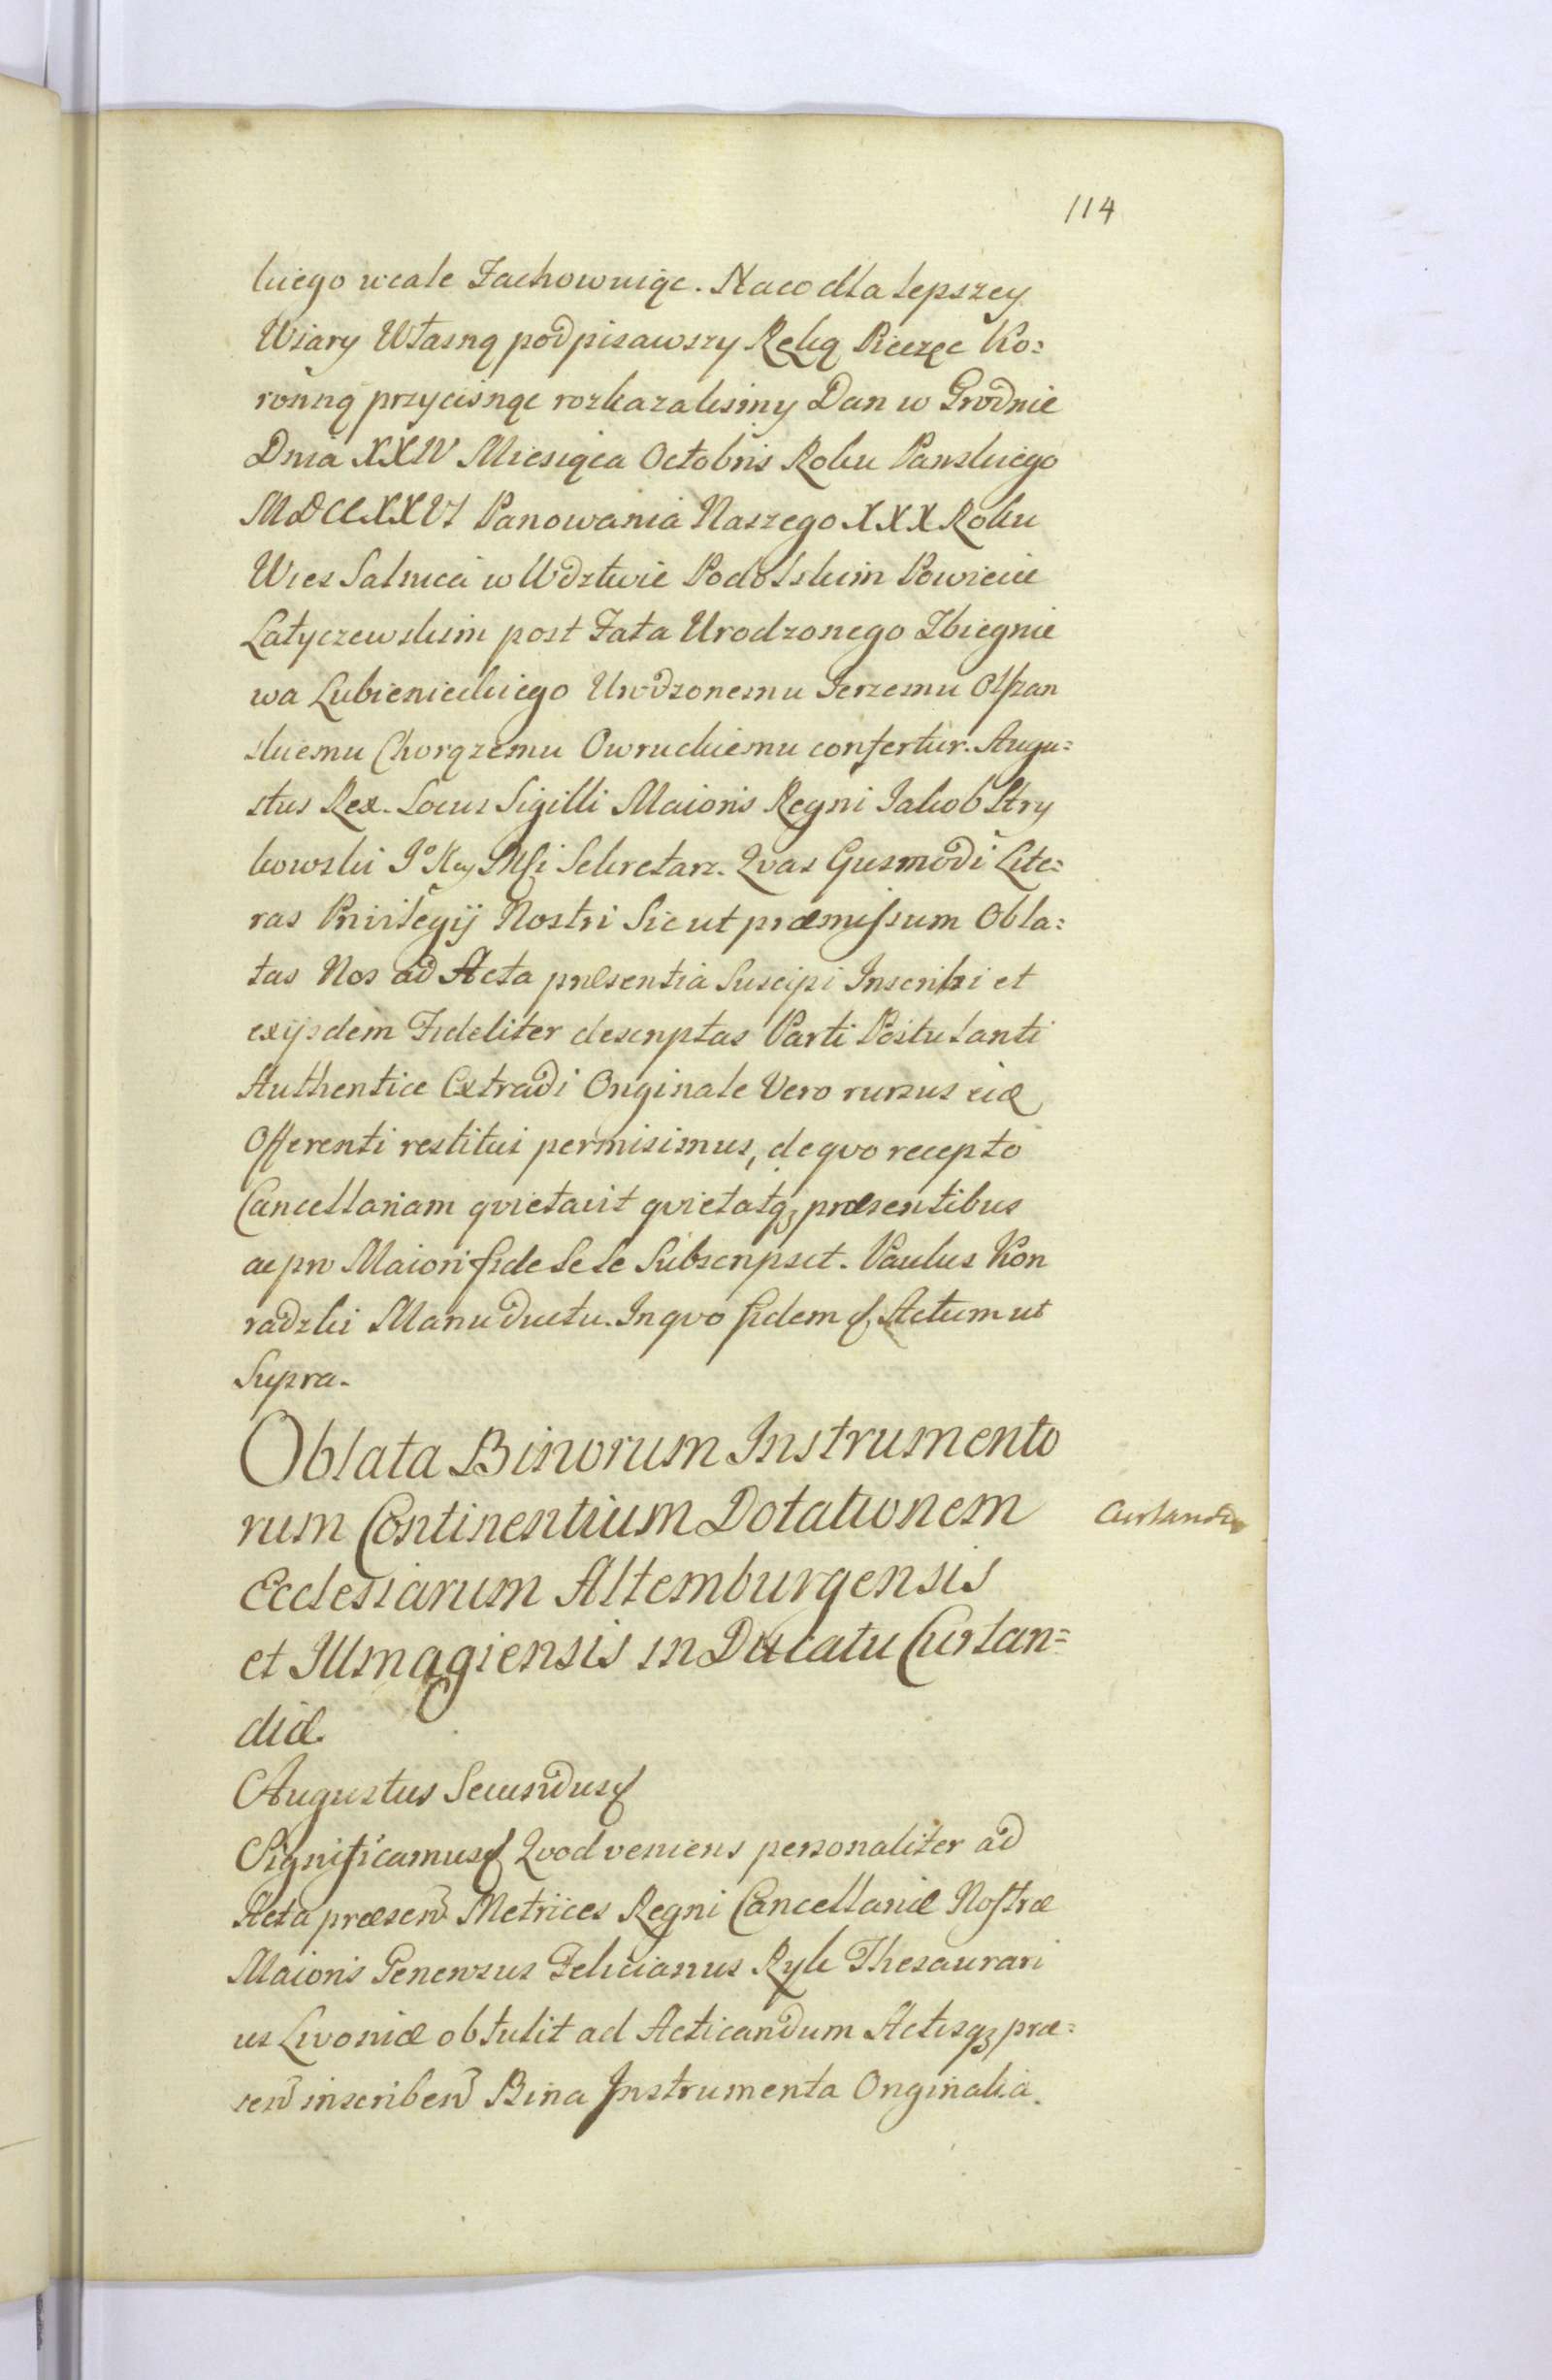 114
kiego wcale Zachowuiąc. Naco dla lepszey
Wiary Własną podpisawszy Ręką Pieczęc Ko=
ronną przycisnąc rozkazalismy Dan w Grodnie
Dnia XXIV Miesiąca Octobris Roku Panskiego
MDCCXXVI Panowania Naszego XXX Roku
Wies Salnica w Wdztwie Podolskim Powiecie
Latyczewskim post Fata Urodzonego Zbignie
wa Lubienieckiego Urodzonemu Jerzemu Olszan
skiemu Chorązemu Owruckiemu confertur. Augu=
stus Rex. Locus Sigilli Maioris Regni Jakob Stry
kowski Sekretarz. Qvas Eiusmodi Lite=
ras Privilegij Nostri Sicut præmissum Obla=
tas Nos ad Acta præsentia Suscipi Inscribi et
exijsdem Fideliter descriptas Parti Postulanti
Authentice Extradi Originale Vero rursus eid
Offerenti restitui permisimus, de qvo recepto
Cancellariam qvietavit qvietatq; præsentibus
ac pro Maiori fide se se Subscripsit. Paulus Kon
radzki Manu ductu. In qvo fidem &. Actum ut
Supra.
Oblata Binorum Instrumento
rum Continentium Dotationem
Ecclesiarum Altemburgensis
et Illmagiensis in Ducatu Curlan=
diæ.
Curlandia
Augustus Secundus &
Significamus & Qvod veniens personaliter ad
Acta præsen Metrices Regni Cancellariæ Nostræ
Maioris Generosus Felicianus Ryk Thesaurari
us Livoniæ obtulit ad Acticandum Actisq; præ=
sen inscriben Bina Instrumenta Originalia.